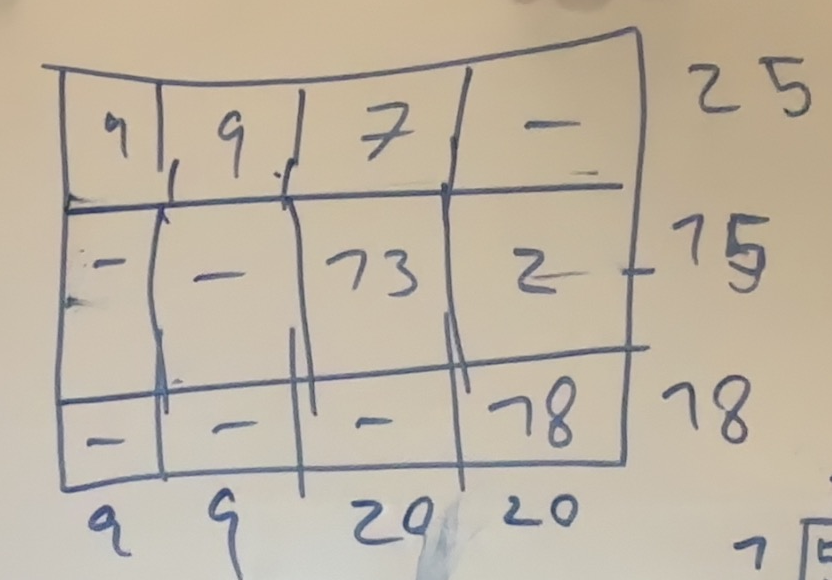 9 9 7 - 25
- - 13 2 15
- - - 18 18
9 9 20 20
1